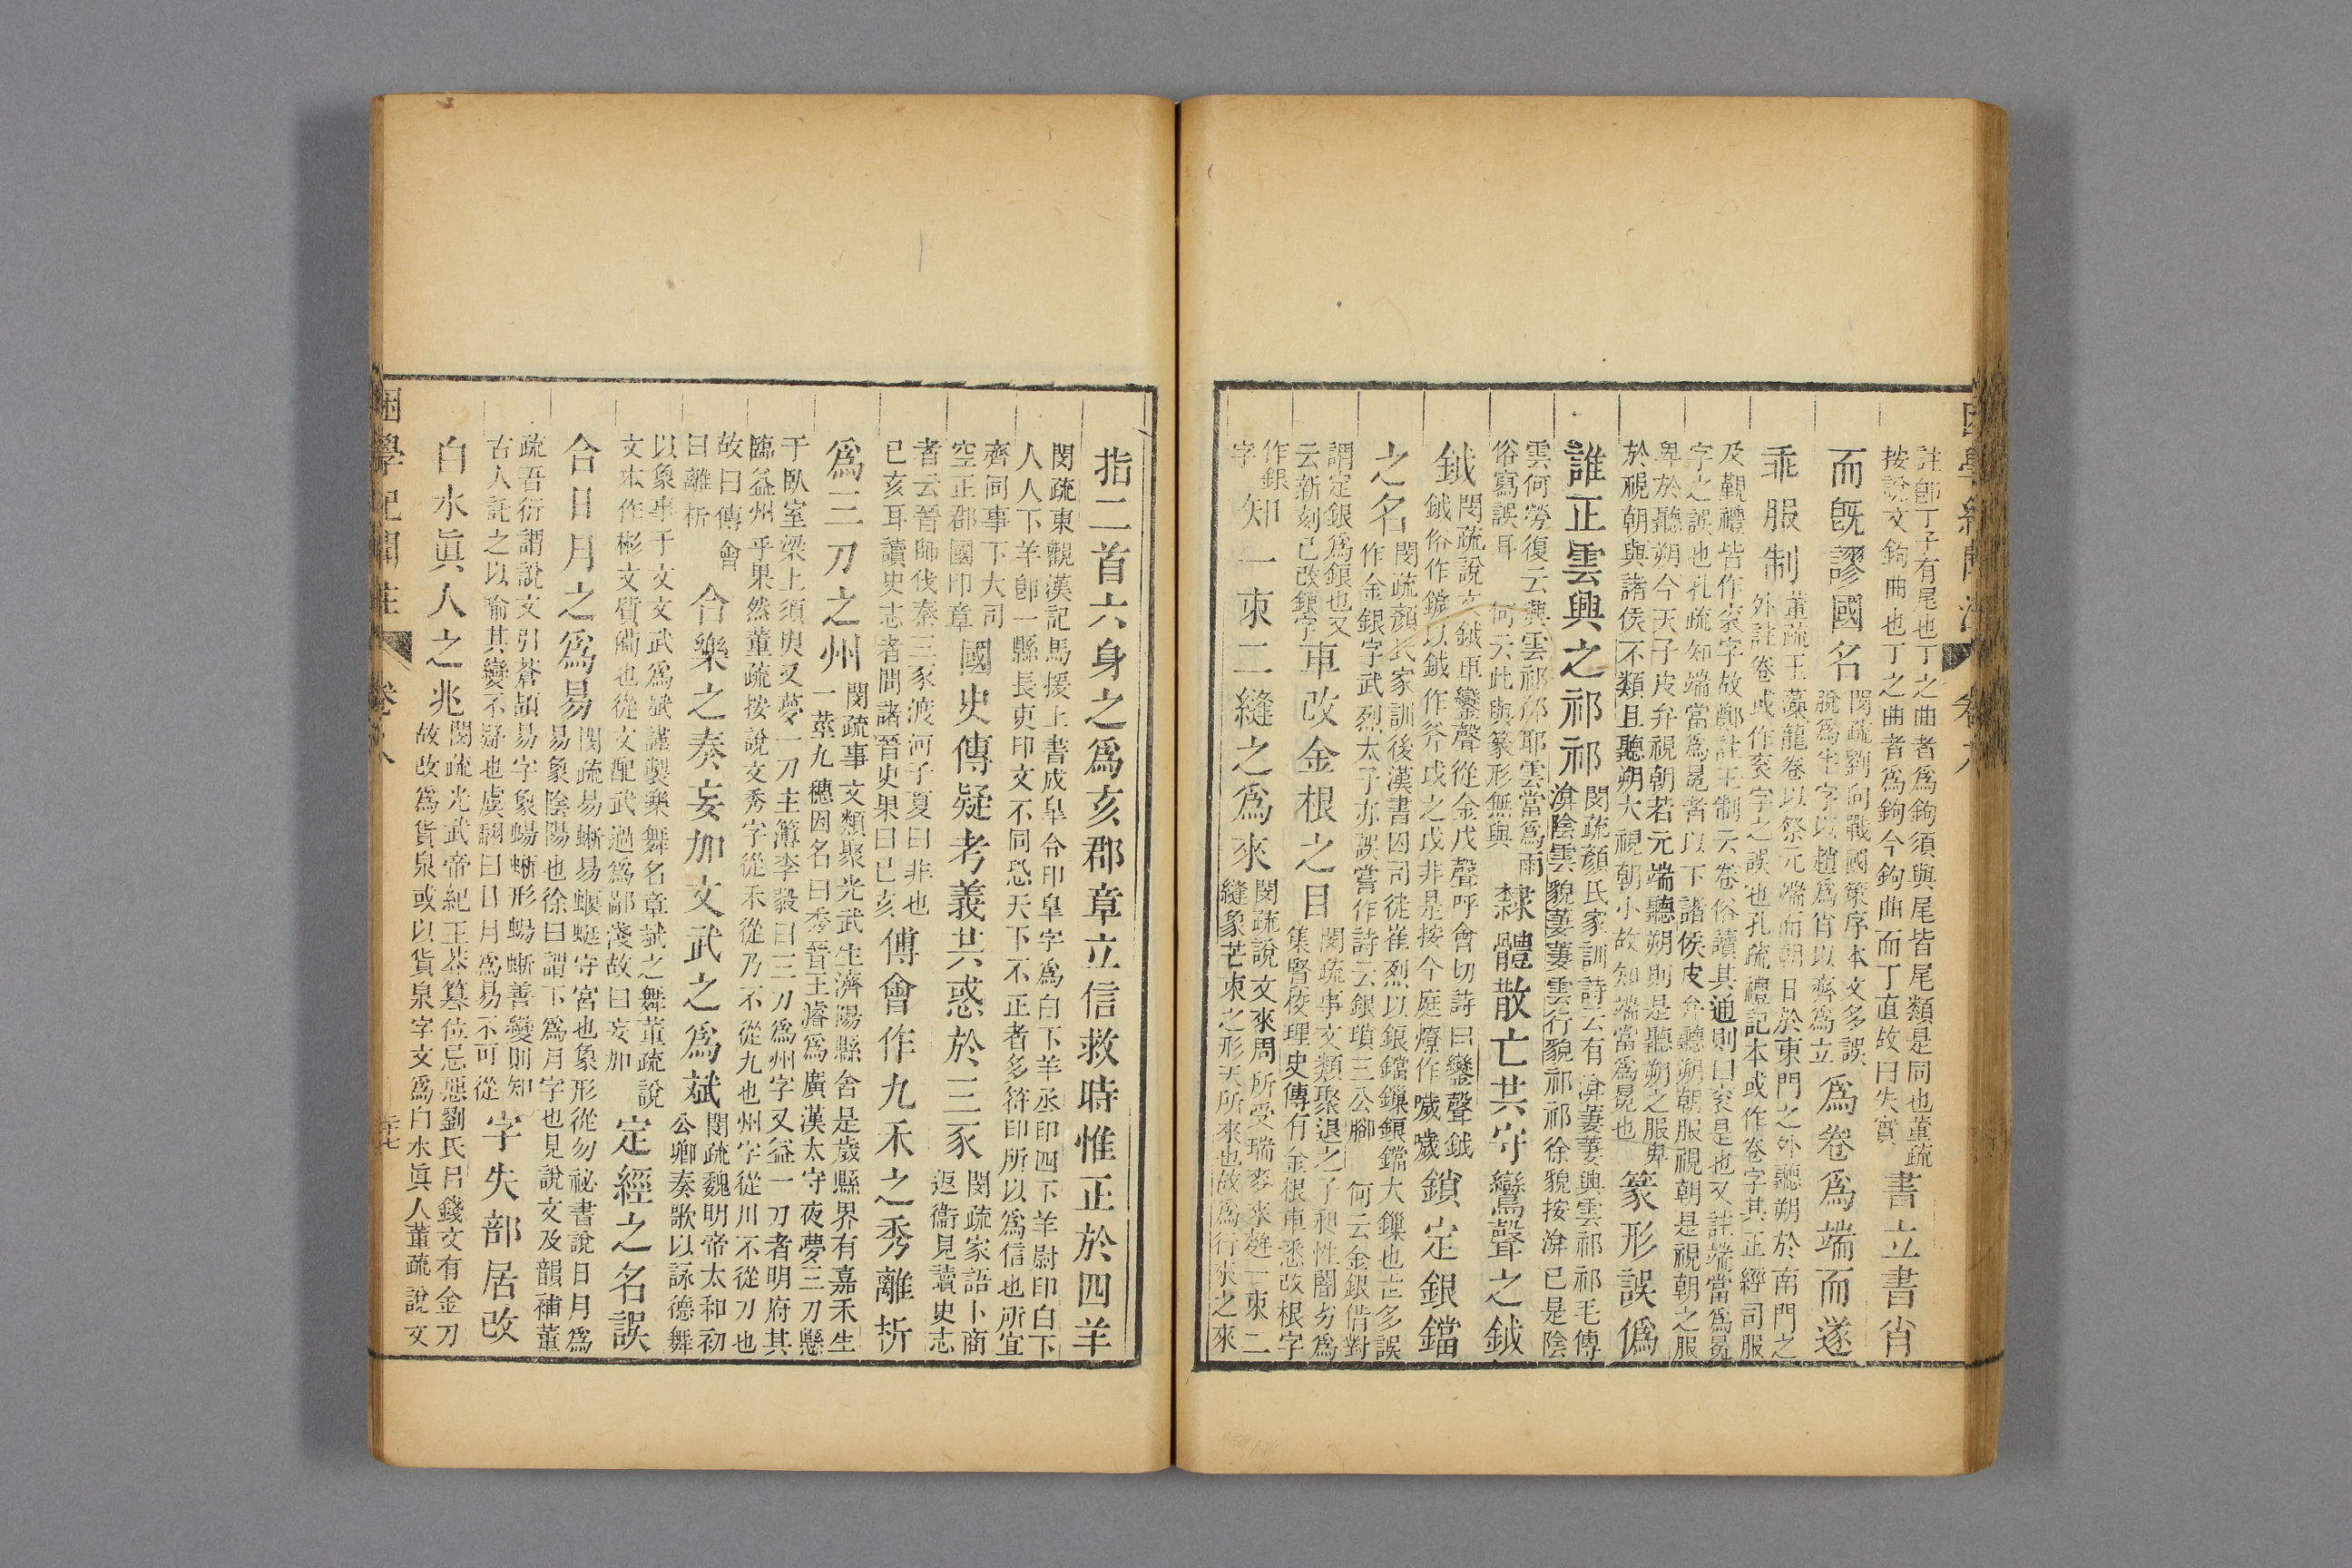 困學紀聞注 卷八
註卽丁子有尾也丁之曲者爲鉤須與尾皆尾類是同也董疏
按說文鉤曲也丁之曲者爲鉤今鉤曲而丁直故曰失實
書立書肖
而旣謬國名
閔疏劉向戰國策序本文多誤
脫爲半字以趙爲肖以齊爲立
爲卷爲端而遂
乖服制
董疏王藻龍卷以祭元端而朝日於東門之外聽朔於南門之
外註卷或作袞字之誤也孔疏禮記本或作卷字其正經司服
及覲禮皆作袞字故鄭註王制云卷俗讀其通則曰袞是也又註端當爲冕
字之誤也孔疏知端當爲冕者以下諸侯皮弁聽朔朝服視朝是視朝之服
卑於聽朔今天子皮弁視朝若元端聽朔則是聽朔之服卑
於視朝與諸侯不類且聽朔大視朝小故知端當爲冕也
篆形誤僞
誰正雲興之祁祁
閔疏顏氏家訓詩云有渰萋萋興雲祁祁毛傳
渰陰雲貌萋萋雲行貌祁祁徐貌按渰已是陰
雲何勞復云興雲祁祁耶雲當爲雨
俗寫誤耳 何云此與篆形無與
隸體散亡共守鸞聲之鉞
鉞
閔疏說文鉞車鑾聲從金戉聲呼會切詩曰鑾聲鉞
鉞俗作鐬以鉞作斧戉之戉非是按今庭燎作噦噦
鎖定銀鐺
之名
閔疏顏氏家訓後漢書囚司徒崔烈以鋃鐺鏁鋃鐺大鏁也世多誤
作金銀字武烈太子亦誤嘗作詩云銀瑣三公腳 何云金銀借對
謂定銀爲鋃也又
云新刻已改鋃字
車改金根之目
閔疏事文類聚退之子和性闇劣爲
集賢校理史傳有金根車悉改根字
作銀
字
知一朿二縫之爲來
閔疏說文來周所受瑞麥來麰一朿二
縫象芒朿之形天所來也故爲行來之來
指二首六身之爲亥郡章立信救時惟正於四羊
閔疏東觀漢記馬援上書成皐令印皐字爲白下羊丞印四下羊尉印白下
人人下羊卽一縣長吏印文不同恐天下不正者多符印所以爲信也所宜
齊同事下大司
空正郡國印章
國史傳疑考義共惑於三豕
閔疏家語卜商
返衞見讀史志
者云晉師伐秦三豕渡河子夏曰非也
已亥耳讀史志者問諸晉史果曰已亥
傅會作九禾之秀離析
爲三刀之州
閔疏事文類聚光武生濟陽縣舍是歲縣界有嘉禾生
一莖九穗因名曰秀晉王濬爲廣漢太守夜夢三刀懸
于臥室梁上須臾又夢一刀主簿李毅曰三刀爲州字又益一刀者明府其
臨益州乎果然董疏按說文秀字從禾從乃不從九也州字從川不從刀也
故曰傅會
曰離析
合樂之奏妄加文武之爲斌
閔疏魏明帝太和初
公卿奏歌以詠德舞
以象事于文文武爲斌謹製樂舞名章斌之舞董疏說
文本作彬文質備也從文配武過爲鄙淺故曰妄加
定經之名誤
合日月之爲易
閔疏易蜥易蝘蜓守宮也象形從勿祕書說日月爲
易象陰陽也徐曰謂下爲月字也見說文及韻補董
疏吾衍謂說文引蒼頡易字象蜴蜥形蜴蜥善變則知
古人託之以喻其變不疑也虞翻曰日月爲易不可從
字失部居改
白水眞人之兆
閔疏光武帝紀王莽篡位忌惡劉氏㠯錢文有金刀
故改爲貨泉或以貨泉字文爲白水眞人董疏說文
困學紀聞注 卷八 二十七